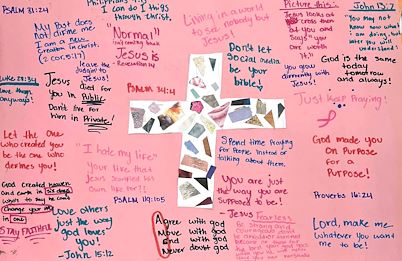 PSALM 31:24
My Past does
not define me.
I am a new
Creation in christ.
(2 cor. 5:17)
Philippians 4:13
can do all things
through christ.
"Normal"
isn't coming back
JESUS IS
- Revelation
Living in a world
to see nobody but
Jesus!
Picture this:
Jesus looks at
cross then
but you and
says "you
are worth
it."
John 13:7
"You may not
know now what
I am doing, but
later you will
understand!
Don't let
Social media
be your
bible!
God is the same
today
tomorrow
and always!
you grow
Jesus!
Luke 23:34
love them
anyways!
leave the
Judgin' to
Jesus!
Jesus
died for
you in
Public.
Don't live for
him in Private!
PSALM 34:4
Just keep Praying!
Let the One
who created you
be the one who
defines you!
"I hate my life"
your life that
Jesus
own life for?!
Spend time Praying
for People instead of
talking about them.
God made you
On Purpose
for a
Purpose!
God created Heaven
and earth in 6 days
who's to say he cant
change your life
in one
STAY FAITHFUL
PSALM 119:105
You are just
the way you are
supposed to be!
Proverbs 16:24
Love others
just the way
god loves
you!
-John. 15:12
Agree with god
Move with god
End with god
Never doubt god
Jesus
Fearless
Be strong and
courageous
Lord, make me
whatever you want
me to be!